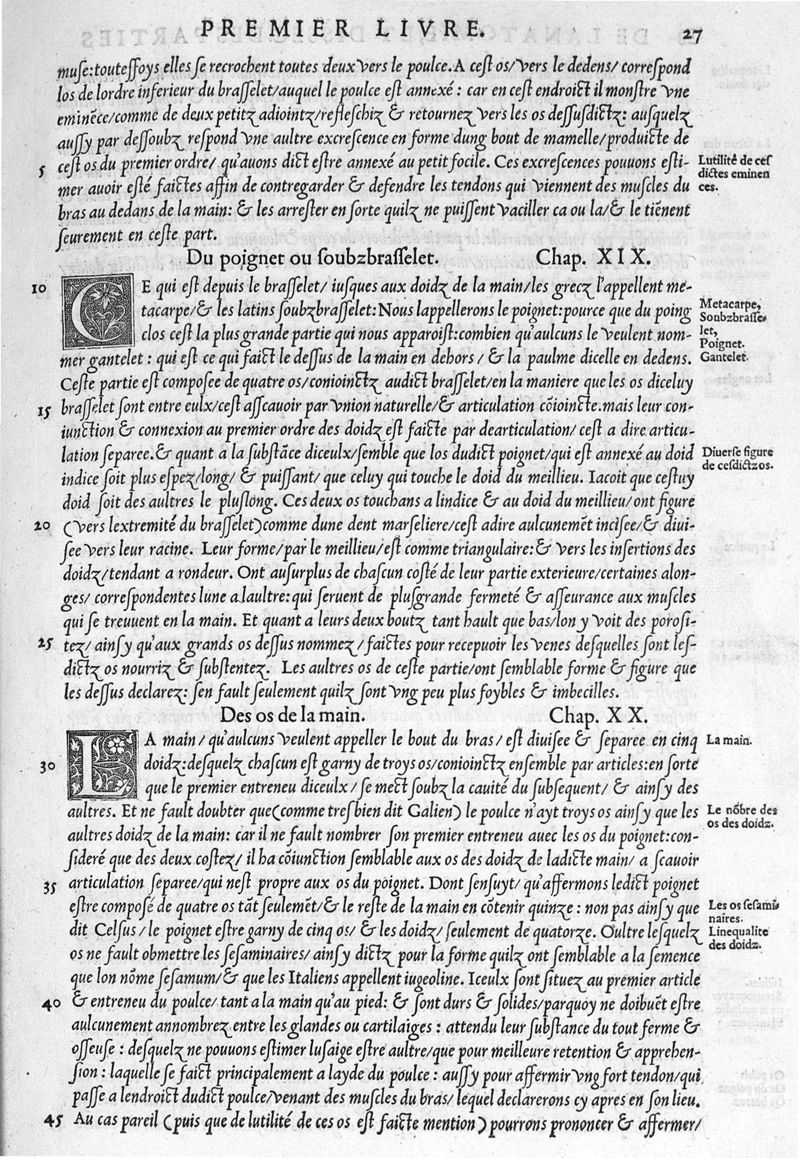 PREMIER LIVRE. 27
muse:toutesfoys elles se recrochent toutes deux vers le poulce. A cest os/vers le dedens/ correspond
los de lordre inferieur du brasselet/auquel le poulce est annexé: car en cest endroict il monstre vne
eminẽce/comme de deux petitz adiointz/reflechiz & retournez vers les os dessusdictz: ausquelz
aussy par dessoubz respond vne aultre excrescence en forme dung bout de mamelle/produicte de
5 cest os du premier ordre/ qu'auons dict estre annexé au petit focile. Ces excrescences pouuons esti-
Lutilité de ces
dictes eminen
ces.
mer auoir esté faictes affin de contregarder & defendre les tendons qui viennent des muscles du
bras au dedans de la main: & les arrester en sorte quilz ne puissent vaciller ca ou la/& le tiẽnent
seurement en ceste part.
Du poignet ou soubzbrasselet. Chap. XIX.
10 CE qui est depuis le brasselet/ iusques aux doidz de la main/les grecz l'appellent me-
tacarpe/& les latins soubzbrasselet: Nous lappellerons le poignet: pource que du poing
Metacarpe,
Soubzbrasse-
let,
Poignet.
Gantelet.
clos cest la plus grande partie qui nous apparoist: combien qu'aulcuns le veulent nom-
mer gantelet: qui est ce qui faict le dessus de la main en dehors / & la paulme dicelle en dedens.
Ceste partie est composee de quatre os/conioinctz audict brasselet/en la maniere que les os diceluy
15 brasselet sont entre eulx/cest asscauoir par vnion naturelle/& articulation cõioincte. mais leur con-
iunction & connexion au premier ordre des doidz est faicte par dearticulation/ cest a dire articu-
lation separee. & quant a la substãce diceulx/semble que los dudict poignet/qui est annexé au doid
Diuerse figure
de cesdictz os.
indice soit plus espez/long/ & puissant/ que celuy qui touche le doid du meillieu. Iacoit que cestuy
doid soit des aultres le pluslong. Ces deux os touchans a lindice & au doid du meillieu/ont figure
20 (vers lextremité du brasselet) comme dune dent marseliere/cest adire aulcunemẽt incisee/& diui-
see vers leur racine. Leur forme/par le meillieu/est comme triangulaire: & vers les insertions des
doidz/tendant a rondeur. Ont ausurplus de chascun costé de leur partie exterieure/certaines alon-
ges/ correspondentes lune a laultre: qui seruent de plusgrande fermeté & asseurance aux muscles
qui se treuuent en la main. Et quant a leurs deux boutz tant hault que bas/lon y voit des porosi-
25 tez/ ainsy qu'aux grands os dessus nommez/ faictes pour recepuoir les venes desquelles sont les-
dictz os nourriz & substentez. Les aultres os de ceste partie/ont semblable forme & figure que
les dessus declarez: sen fault seulement quilz sont vng peu plus foybles & imbecilles.
Des os de la main. Chap. XX.
LA main/ qu'aulcuns veulent appeller le bout du bras/ est diuisee & separee en cinq
La main.
30 doidz: desquelz chascun est garny de troys os/conioinctz ensemble par articles: en sorte
que le premier entreneu diceulx/ se mect soubz la cauité du subsequent/ & ainsy des
aultres. Et ne fault doubter que (comme tresbien dit Galien) le poulce n'ayt troys os ainsy que les
Le nõbre des
os des doidz.
aultres doidz de la main: car il ne fault nombrer son premier entreneu auec les os du poignet: con-
sideré que des deux costez/ il ha cõiunction semblable aux os des doidz de ladicte main/ a scauoir
35 articulation separee/qui nest propre aux os du poignet. Dont sensuyt/ qu'affermons ledict poignet
estre composé de quatre os tãt seulemẽt/& le reste de la main en cõtenir quinze: non pas ainsy que
Les os sesami-
naires.
dit Celsus/ le poignet estre garny de cinq os/ & les doidz/ seulement de quatorze. Oultre lesquelz
Linequalite
des doidz.
os ne fault obmettre les sesaminaires/ ainsy dictz pour la forme quilz ont semblable a la semence
que lon nõme sesamum/& que les Italiens appellent iugeoline. Iceulx sont situez au premier article
40 & entreneu du poulce/ tant a la main qu'au pied: & sont durs & solides/parquoy ne doibuẽt estre
aulcunement annombrez entre les glandes ou cartilaiges: attendu leur substance du tout ferme &
osseuse: desquelz ne pouuons estimer lusaige estre aultre/que pour meilleure retention & apprehen-
sion: laquelle se faict principalement a layde du poulce: aussy pour affermir vng fort tendon/qui
passe a lendroict dudict poulce/venant des muscles du bras/ lequel declarerons cy apres en son lieu.
45 Au cas pareil (puis que de lutilité de ces os est faicte mention) pourrons prononcer & affermer/